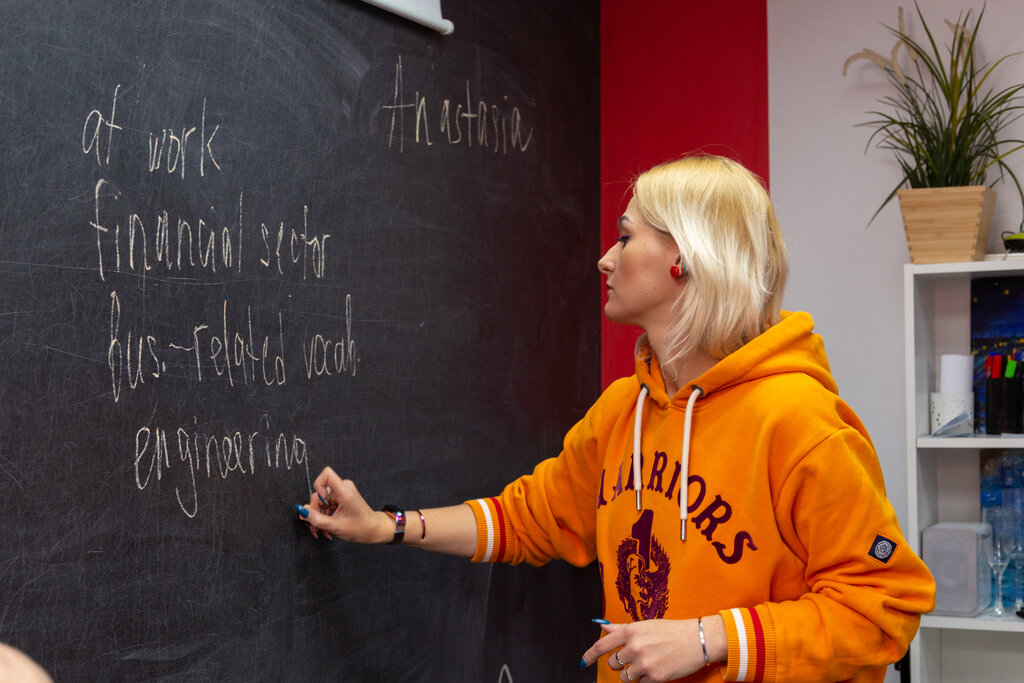 at work
Anastasia
financial sector
bus.-related vocab.
engineering
WARRIORS
1